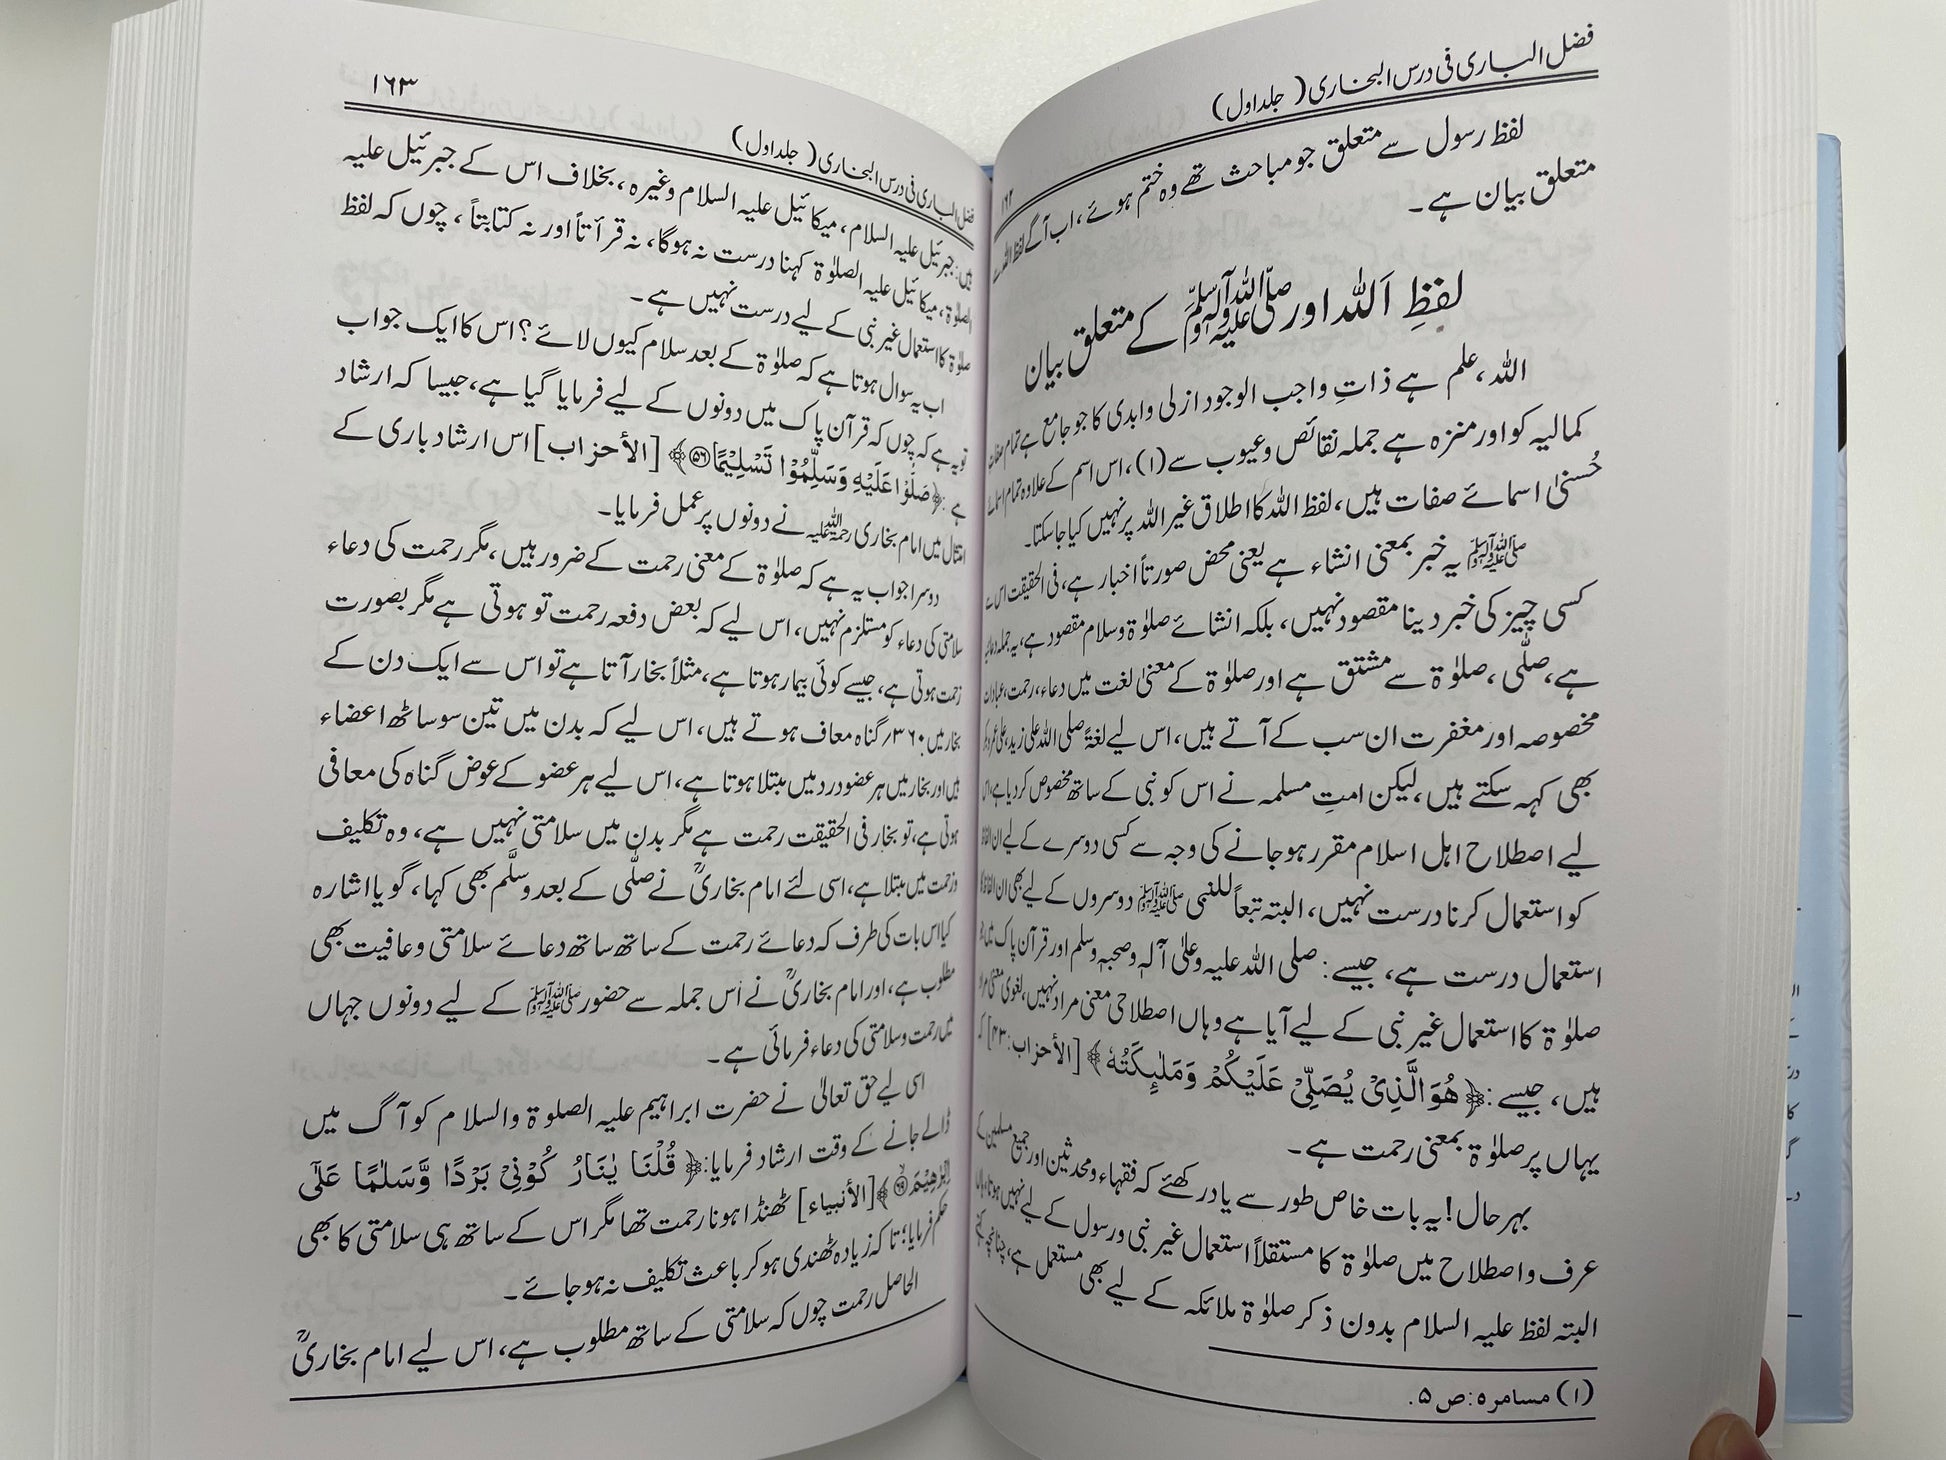 فضل الباری فی درس البخاری ( جلد اول )
۱۶۲
لفظ رسول سے متعلق جو مباحث تھے وہ ختم ہوئے، اب آگے لفظ اللہ سے
متعلق بیان ہے۔
لفظِ اَللہ اور ﷺ کے متعلق بیان
اللہ، علم ہے ذاتِ واجب الوجود ازلی وابدی کا جو جامع ہے تمام صفات
کمالیہ کو اور منزہ ہے جملہ نقائص وعیوب سے (۱)، اس اسم کے علاوہ تمام اسمائے
حُسنیٰ اسمائے صفات ہیں، لفظ اللہ کا اطلاق غیر اللہ پر نہیں کیا جاسکتا۔
ﷺ یہ خبر بمعنی انشاء ہے یعنی محض صورتاً اخبار ہے، فی الحقیقت اس سے
کسی چیز کی خبر دینا مقصود نہیں، بلکہ انشائے صلوٰۃ وسلام مقصود ہے، یہ جملہ دعائیہ
ہے، صلّٰی، صلوٰۃ سے مشتق ہے اور صلوٰۃ کے معنیٰ لغت میں دعاء، رحمت، عبادات
مخصوصہ اور مغفرت ان سب کے آتے ہیں، اس لیے لغۃً صلی اللہ علی زید، علی عمرو
بھی کہہ سکتے ہیں، لیکن امتِ مسلمہ نے اس کو نبی کے ساتھ مخصوص کردیا ہے، اس
لیے اصطلاح اہل اسلام مقرر ہوجانے کی وجہ سے کسی دوسرے کے لیے ان الفاظ
کو استعمال کرنا درست نہیں، البتہ تبعاً للنبی ﷺ دوسروں کے لیے بھی ان الفاظ کا
استعمال درست ہے، جیسے: صلی اللہ علیہ وعلیٰ آلہٖ وصحبہٖ وسلم اور قرآن پاک میں
صلوٰۃ کا استعمال غیر نبی کے لیے آیا ہے وہاں اصطلاحی معنی مراد نہیں، لغوی معنیٰ مراد
ہیں، جیسے: ﴿هُوَ الَّذِىْ يُصَلِّىْ عَلَيْكُمْ وَمَلٰٓئِكَتُهٗ﴾ [الأحزاب:۴۳] کہ
یہاں پر صلوٰۃ بمعنی رحمت ہے۔
بہر حال! یہ بات خاص طور سے یاد رکھئے کہ فقہاء ومحدثین اور جمیع مسلمین کے
عرف واصطلاح میں صلوٰۃ کا مستقلاً استعمال غیر نبی ورسول کے لیے نہیں ہوتا، ہاں
البتہ لفظ علیہ السلام بدون ذکر صلوٰۃ ملائکہ کے لیے بھی مستعمل ہے، چنانچہ کہتے
(۱) مسامرہ: ص ۵.
فضل الباری فی درس البخاری ( جلد اول )
۱۶۳
ہیں: جبرئیل علیہ السلام، میکائیل علیہ السلام وغیرہ، بخلاف اس کے جبرئیل علیہ
الصلوٰۃ، میکائیل علیہ الصلوٰۃ کہنا درست نہ ہوگا، نہ قرأتاً اور نہ کتابتاً، چوں کہ لفظ
صلوٰۃ کا استعمال غیر نبی کے لیے درست نہیں ہے۔
اب یہ سوال ہوتا ہے کہ صلوٰۃ کے بعد سلام کیوں لائے؟ اس کا ایک جواب
تو یہ ہے کہ چوں کہ قرآن پاک میں دونوں کے لیے فرمایا گیا ہے، جیسا کہ ارشاد
ہے: ﴿صَلُّوْا عَلَيْهِ وَسَلِّمُوْا تَسْلِيْمًا۝۵۶﴾ [الأحزاب] اس ارشاد باری کے
امتثال میں امام بخاری رحمۃ اللہ علیہ نے دونوں پر عمل فرمایا۔
دوسرا جواب یہ ہے کہ صلوٰۃ کے معنیٰ رحمت کے ضرور ہیں، مگر رحمت کی دعاء
سلامتی کی دعاء کو مستلزم نہیں، اس لیے کہ بعض دفعہ رحمت تو ہوتی ہے مگر بصورت
زحمت ہوتی ہے، جیسے کوئی بیمار ہوتا ہے، مثلاً بخار آتا ہے تو اس سے ایک دن کے
بخار میں ۳۶۰/ گناہ معاف ہوتے ہیں، اس لیے کہ بدن میں تین سو ساٹھ اعضاء
ہیں اور بخار میں ہر عضو درد میں مبتلا ہوتا ہے، اس لیے ہر عضو کے عوض گناہ کی معافی
ہوتی ہے، تو بخار فی الحقیقت رحمت ہے مگر بدن میں سلامتی نہیں ہے، وہ تکلیف
وزحمت میں مبتلا ہے، اسی لئے امام بخاریؒ نے صلّٰی کے بعد وسلَّم بھی کہا، گویا اشارہ
کیا اس بات کی طرف کہ دعائے رحمت کے ساتھ ساتھ دعائے سلامتی وعافیت بھی
مطلوب ہے، اور امام بخاریؒ نے اس جملہ سے حضور ﷺ کے لیے دونوں جہاں
میں رحمت وسلامتی کی دعاء فرمائی ہے۔
اسی لیے حق تعالیٰ نے حضرت ابراہیم علیہ الصلوۃ والسلام کو آگ میں
ڈالے جانے کے وقت ارشاد فرمایا: ﴿قُلْنَا يٰنَارُ كُوْنِىْ بَرْدًا وَّسَلٰمًا عَلٰٓى
اِبْرٰهِيْمَ۝۶۹﴾ [الأنبياء] ٹھنڈا ہونا رحمت تھا مگر اس کے ساتھ ہی سلامتی کا بھی
حکم فرمایا؛ تاکہ زیادہ ٹھنڈی ہوکر باعث تکلیف نہ ہوجائے۔
الحاصل رحمت چوں کہ سلامتی کے ساتھ مطلوب ہے، اس لیے امام بخاریؒ